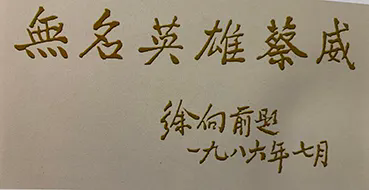 無名英雄蔡威
徐向前題
一九八六年七月